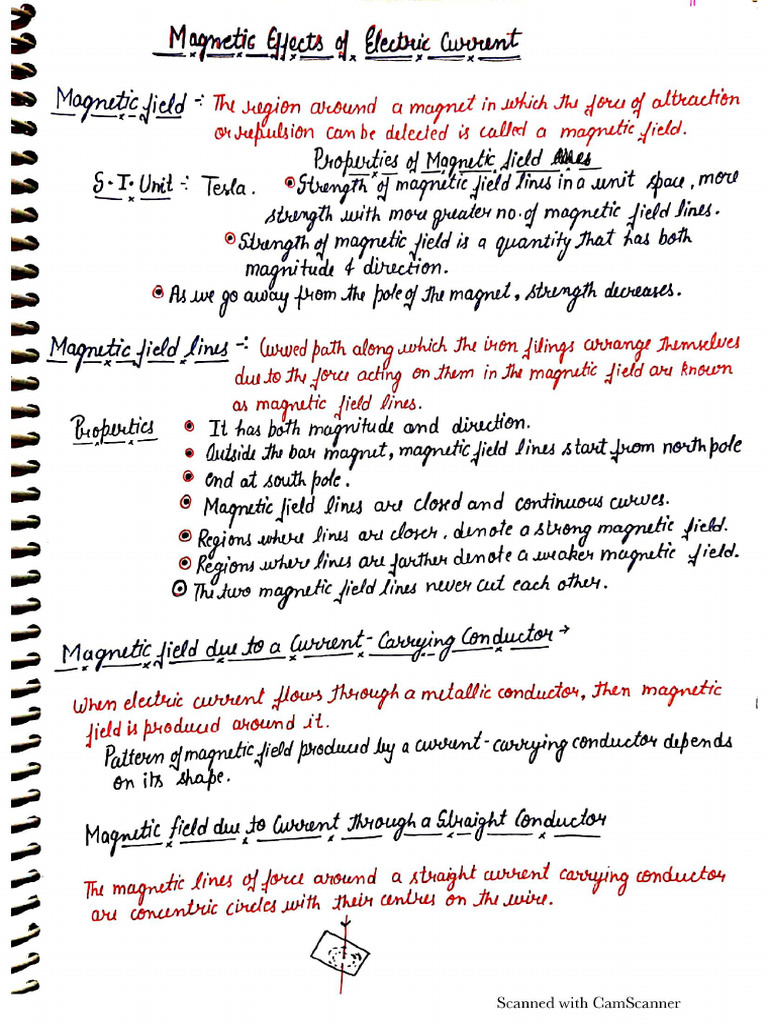 Magnetic Effects of Electric Current
Magnetic field -: The region around a magnet in which the force of attraction
or repulsion can be detected is called a magnetic field.
Properties of Magnetic field
S.I. Unit -: Tesla. Strength of magnetic field lines in a unit space, more
strength with more greater no. of magnetic field lines.
Strength of magnetic field is a quantity that has both
magnitude & direction.
As we go away from the pole of the magnet, strength decreases.
Magnetic field lines -: Curved path along which the iron filings arrange themselves
due to the force acting on them in the magnetic field are known
as magnetic field lines.
Properties It has both magnitude and direction.
Outside the bar magnet, magnetic field lines start from north pole
end at south pole.
Magnetic field lines are closed and continuous curves.
Regions where lines are closer, denote a strong magnetic field.
Regions where lines are farther denote a weaker magnetic field.
The two magnetic field lines never cut each other.
Magnetic field due to a Current-Carrying Conductor →
When electric current flows through a metallic conductor, then magnetic
field is produced around it.
Pattern of magnetic field produced by a current-carrying conductor depends
on its shape.
Magnetic field due to Current through a Straight Conductor
The magnetic lines of force around a straight current carrying conductor
are concentric circles with their centres on the wire.
Scanned with CamScanner